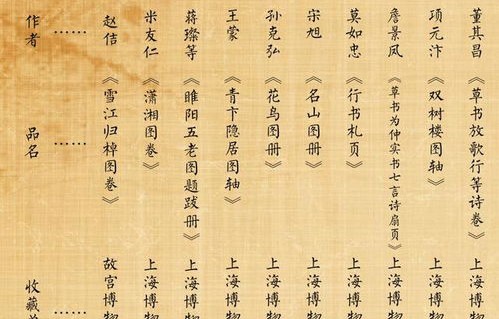 作者 …… 品名 …… 收藏 ……
赵佶 《雪江归棹图卷》 故宫博物
米友仁 《潇湘图卷》 上海博物
蒋璨等 《睢阳五老图题跋册》 上海博物
王蒙 《青卞隐居图轴》 上海博物
孙克弘 《花鸟图册》 上海博物
宋旭 《名山图册》 上海博物
莫如忠 《行书札页》 上海博物
詹景凤 《草书为仲实书七言诗扇页》 上海博物
项元汴 《双树楼图轴》 上海博物
董其昌 《草书放歌行等诗卷》 上海博物